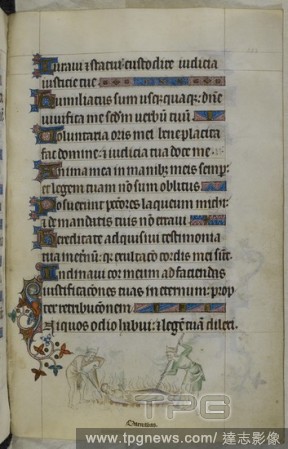 Iuraui & statui custodire iudicia
iusticie tue.
Humiliatus sum usq; quaq; dñe
uiuifica me sc̄dm uerbū tuū
Voluntaria oris mei beneplacita
fac domine & iudicia tua doce me.
Anima mea in manib; meis semp:
et legem tuam nō sum oblitus
Posuerunt pc̄cores laqueum michi:
& de mandatis tuis nō erraui
Hereditate adquisiui testimonia
tua in et̄nū: q̄ exultacō cordis mei sūt.
Inclinaui cor meum ad faciendas
iustificacōnes tuas in eternum: prop
ter retribucōnem
Iniquos odio habui: & legē tuā dilexi.
TPG
www.tpgnews.com / 達志影像